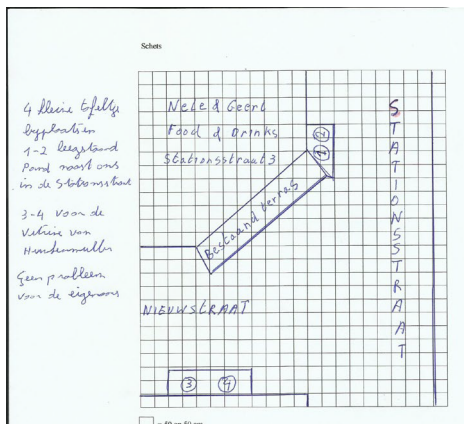 Schets
4 kleine tafeltje
byplaatsen
1-2 leegstaand
Pand naast ons
in de Stationsstraat
3-4 voor de
Vitrine van
Geen probleem
voor de eigenaars
Nele & Geert
Food & Drinks
Stationsstraat 3
1 2
Bestaand terras
STATIONSSTRAAT
NIEUWSTRAAT
3 4
= 50 op 50 cm